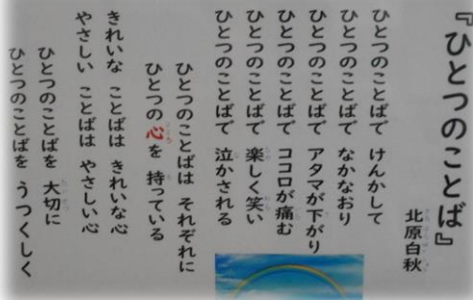 『ひとつのことば』
北原白秋
ひとつのことばで けんかして
ひとつのことばで なかなおり
ひとつのことばで アタマが下がり
ひとつのことばで ココロが痛む
ひとつのことばで 楽しく笑い
ひとつのことばで 泣かされる
ひとつのことばは それぞれに
ひとつの心を 持っている
きれいな ことばは きれいな心
やさしい ことばは やさしい心
ひとつのことばを 大切に
ひとつのことばを うつくしく